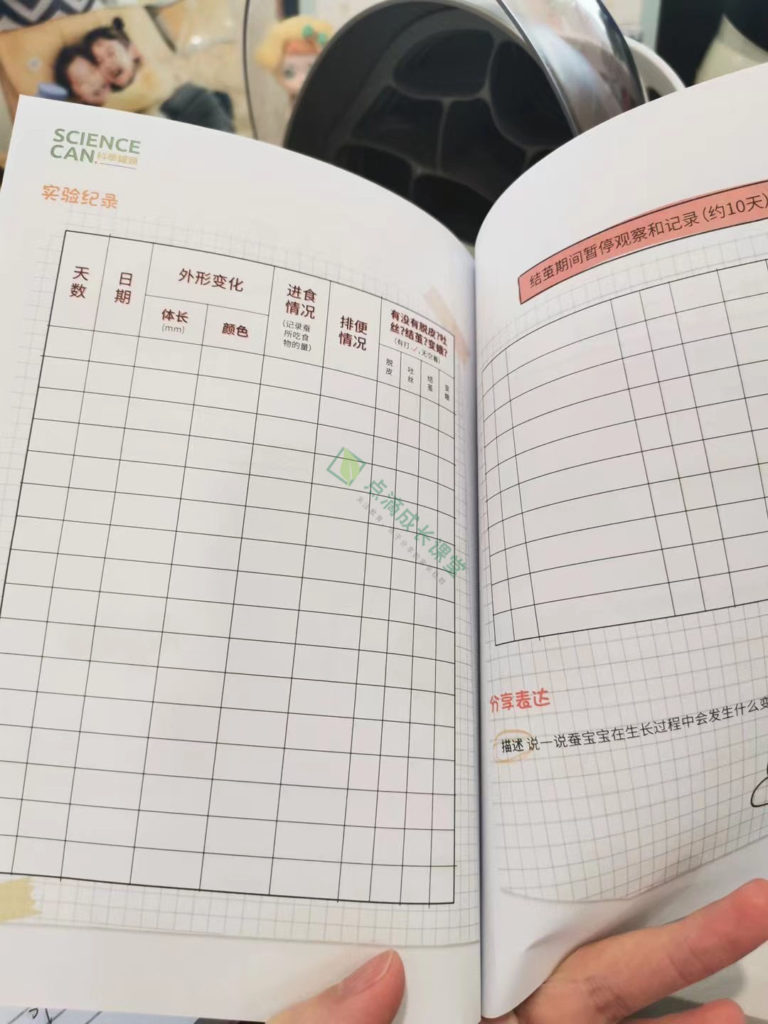 SCIENCE
CAN.科学罐头
实验纪录
天数
日期
外形变化
体长
(mm)
颜色
进食
情况
(记录蚕
所吃食
物的量)
排便
情况
有没有脱皮?吐
丝?结茧?变蛹?
(有打✓,无空着)
脱皮
吐丝
结茧
变蛹
点滴成长课堂
结茧期间暂停观察和记录(约10天)
分享表达
描述 说一说蚕宝宝在生长过程中会发生什么变